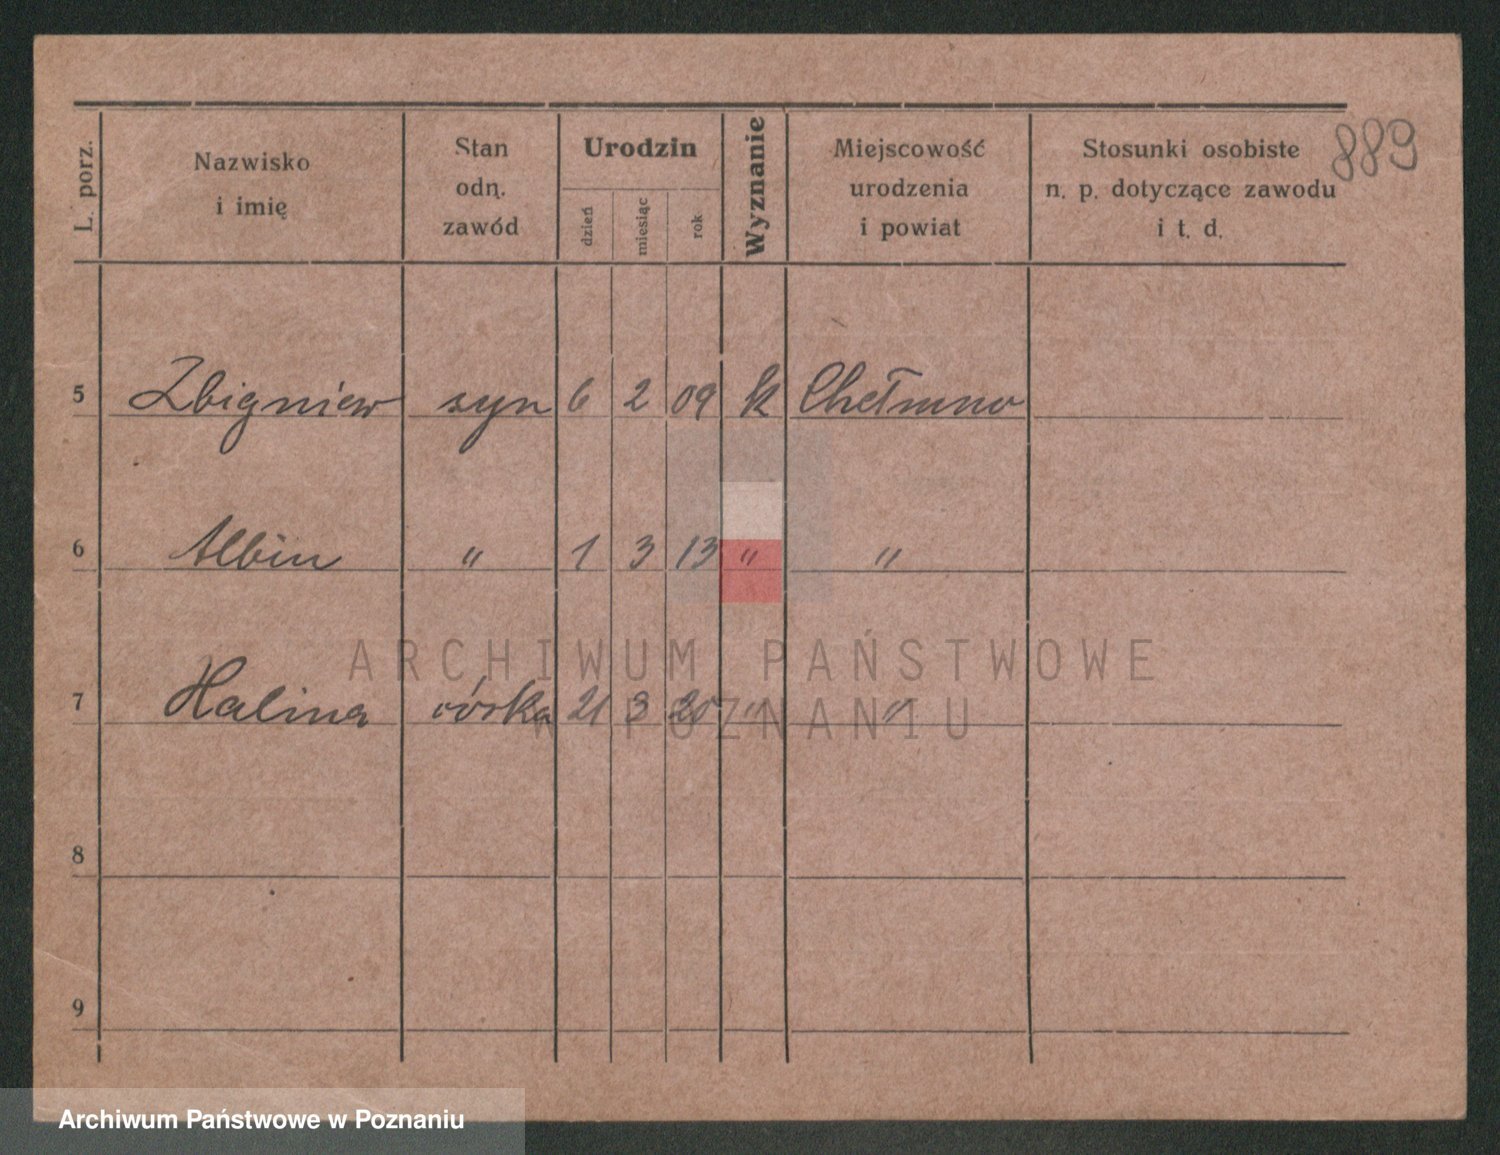 889
L. porz. Nazwisko i imię Stan odn. zawód Urodzin dzień miesiąc rok Wyznanie Miejscowość urodzenia i powiat Stosunki osobiste n. p. dotyczące zawodu i t. d.
5 Zbigniew syn 6 2 09 k Chełmno
6 Albin " 1 3 13 " "
7 Halina córka 21 3 20 " "
8
9
ARCHIWUM PAŃSTWOWE
W POZNANIU
Archiwum Państwowe w Poznaniu